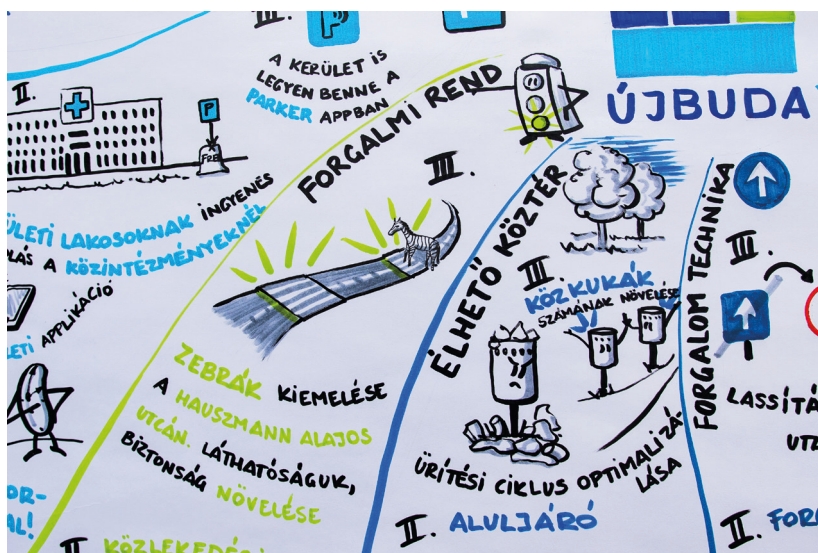 III.
P
A KERÜLET IS
LEGYEN BENNE A
PARKER APPBAN
II.
P
FREE
INGYENES
LAKOSOKNAK
A KÖZINTÉZMÉNYEKNÉL
APPLIKÁCIÓ
FORGALMI REND
III.
ZEBRÁK KIEMELÉSE
A HAUSZMANN ALAJOS
UTCÁN. LÁTHATÓSÁGUK,
BIZTONSÁG NÖVELÉSE
II. KÖZLEKEDÉSI
ÚJBUDA
ÉLHETŐ KÖZTÉR
III.
KÖZKUKÁK
SZÁMÁNAK NÖVELÉSE
ÜRÍTÉSI CIKLUS OPTIMALIZÁ-
LÁSA
II. ALULJÁRÓ
FORGALOM TECHNIKA
III.
LASSÍTÁ
UTC
II. FORG